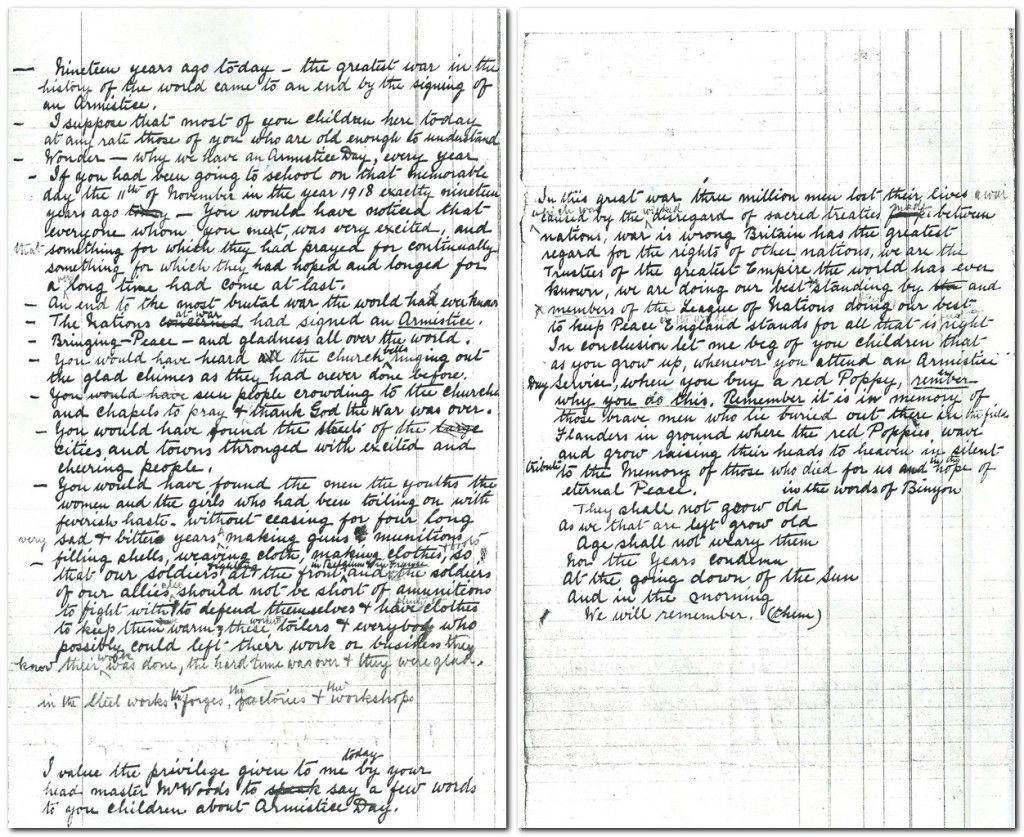 — Nineteen years ago today — the greatest war in the
history of the world came to an end by the signing of
an Armistice.
- I suppose that most of you children here today
at any rate those of you who are old enough to understand
- Wonder — why we have an Armistice Day, every year
- If you had been going to school on that memorable
day the 11th of November in the year 1918 exactly nineteen
years ago today — You would have noticed that
everyone whom you met was very excited, and
that something for which they had prayed for continually
something for which they had hoped and longed for
very
a long time had come at last.
- An end to the most brutal war the world had ever known
at war
- The Nations concerned had signed an Armistice.
- Bringing — Peace — and gladness all over the world.
bells
- You would have heard all the church ringing out
the glad chimes as they had never done before.
- You would have seen people crowding to the Churches
and chapels to pray & thank God the War was over.
- You would have found the streets of the large
cities and towns thronged with excited and
cheering people.
- You would have found the men the youths the
women and the girls who had been toiling on with
feverish haste - without ceasing for four long
very sad & bitter years making guns & munitions
- filling shells, weaving cloth, making clothes, so
fighting in Belgium & in France
that our soldiers at the front, and the soldiers
of our allies should not be short of amunitions
to fight with to defend themselves & have clothes
to keep them warm, these toilers & everybody who
possibly could left their work or business they
works
know their was done, the hard time was over & they were glad.
the the the
in the Steel works forges, factories & workshops
today
I value the privilege given to me by your
head master Mr Woods to speak say a few words
to you children about Armistice Day.
In this great war three million men lost their lives a war
which was wicked made
caused by the disregard of sacred treaties between
nations, war is wrong Britain has the greatest
regard for the rights of other nations, we are the
Trustees of the greatest Empire the world has ever
known, we are doing our best standing by the and
x members of the League of Nations doing our best
to keep Peace England stands for all that is right
In conclusion let me beg of you children that
as you grow up, whenever you attend an Armistice
Day Service, when you buy a red Poppy, remember
why you do this, Remember it is in memory of
those brave men who lie buried out there in the fields
Flanders in ground where the red Poppies wave
and grow raising their heads to heaven in silent
tribute to the Memory of those who died for us and in the hope of
eternal Peace. in the words of Binyon
They shall not grow old
As we that are left grow old
Age shall not weary them
Nor the Years condemn
At the going down of the Sun
And in the morning
We will remember. (them)